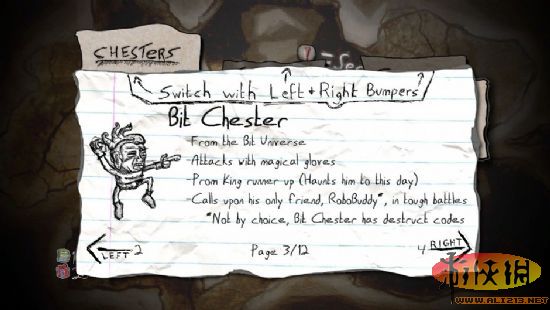 CHESTERS
Y
Switch with Left + Right Bumpers
Bit Chester
-From the Bit Universe
-Attacks with magical gloves
-Prom King runner up (Haunts him to this day)
-Calls upon his only friend, RoboBuddy*, in tough battles
*Not by choice, Bit Chester has destruct codes
LEFT 2
Page 3/12
4 RIGHT
WWW.ALI213.NET